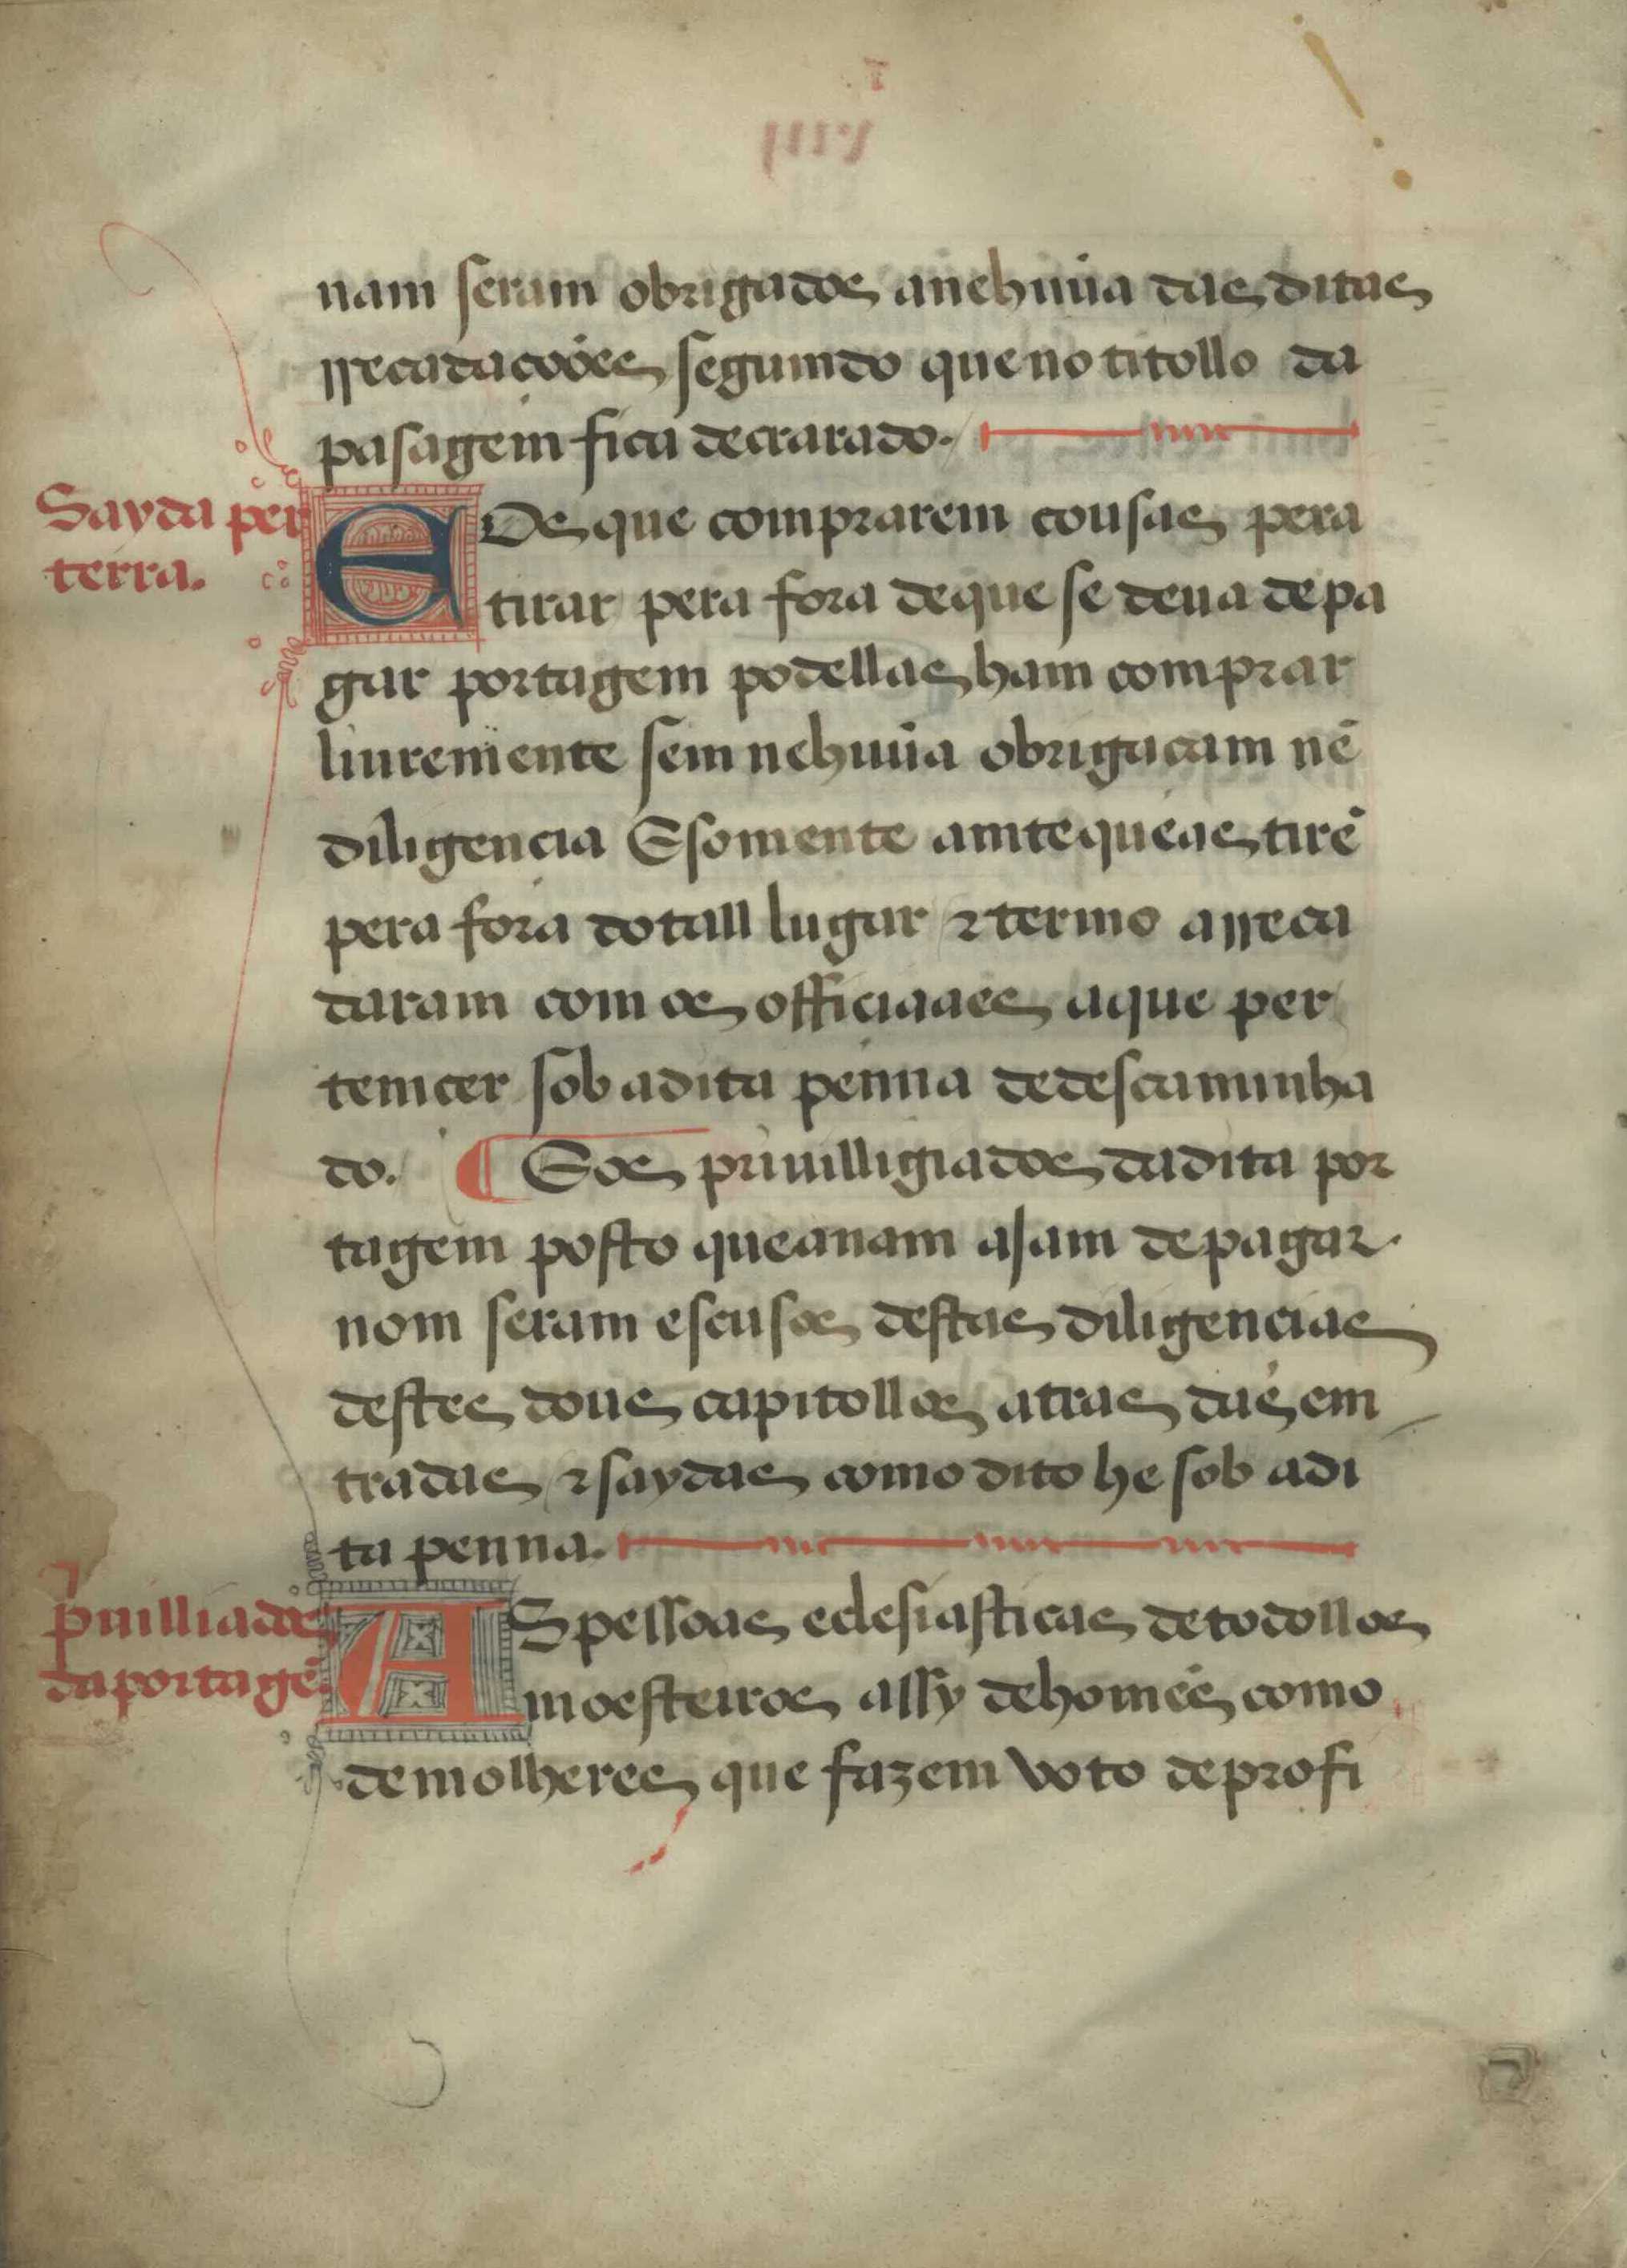 nam seram obrigados a nehuũa das ditas
rrecadaçoões segumdo que no titollo da
pasagem fica decrarado.
Sayda per
terra.
E Os que comprarem cousas pera
tirar pera fora de que se deua de pa
gar portagem podellas ham comprar
liuremente sem nehuũa obrigaçam nẽ
diligencia E somente amte que as tirẽ
pera fora do tall lugar ⁊ termo arreca
daram com os officiaaes a que per
temcer sob a dita penna de descaminha
do. E os priuilligiados da dita por
tagem posto que a nam ajam de pagar.
nom seram escusos destas diligencias
destes dous capitollos atras das em
tradas ⁊ saydas como dito he sob a di
ta penna.
p̃uilliados
da portagẽ.
AS pessoas eclesiasticas de todollos
moesteiros assy de homẽs como
de molheres que fazem voto de profi